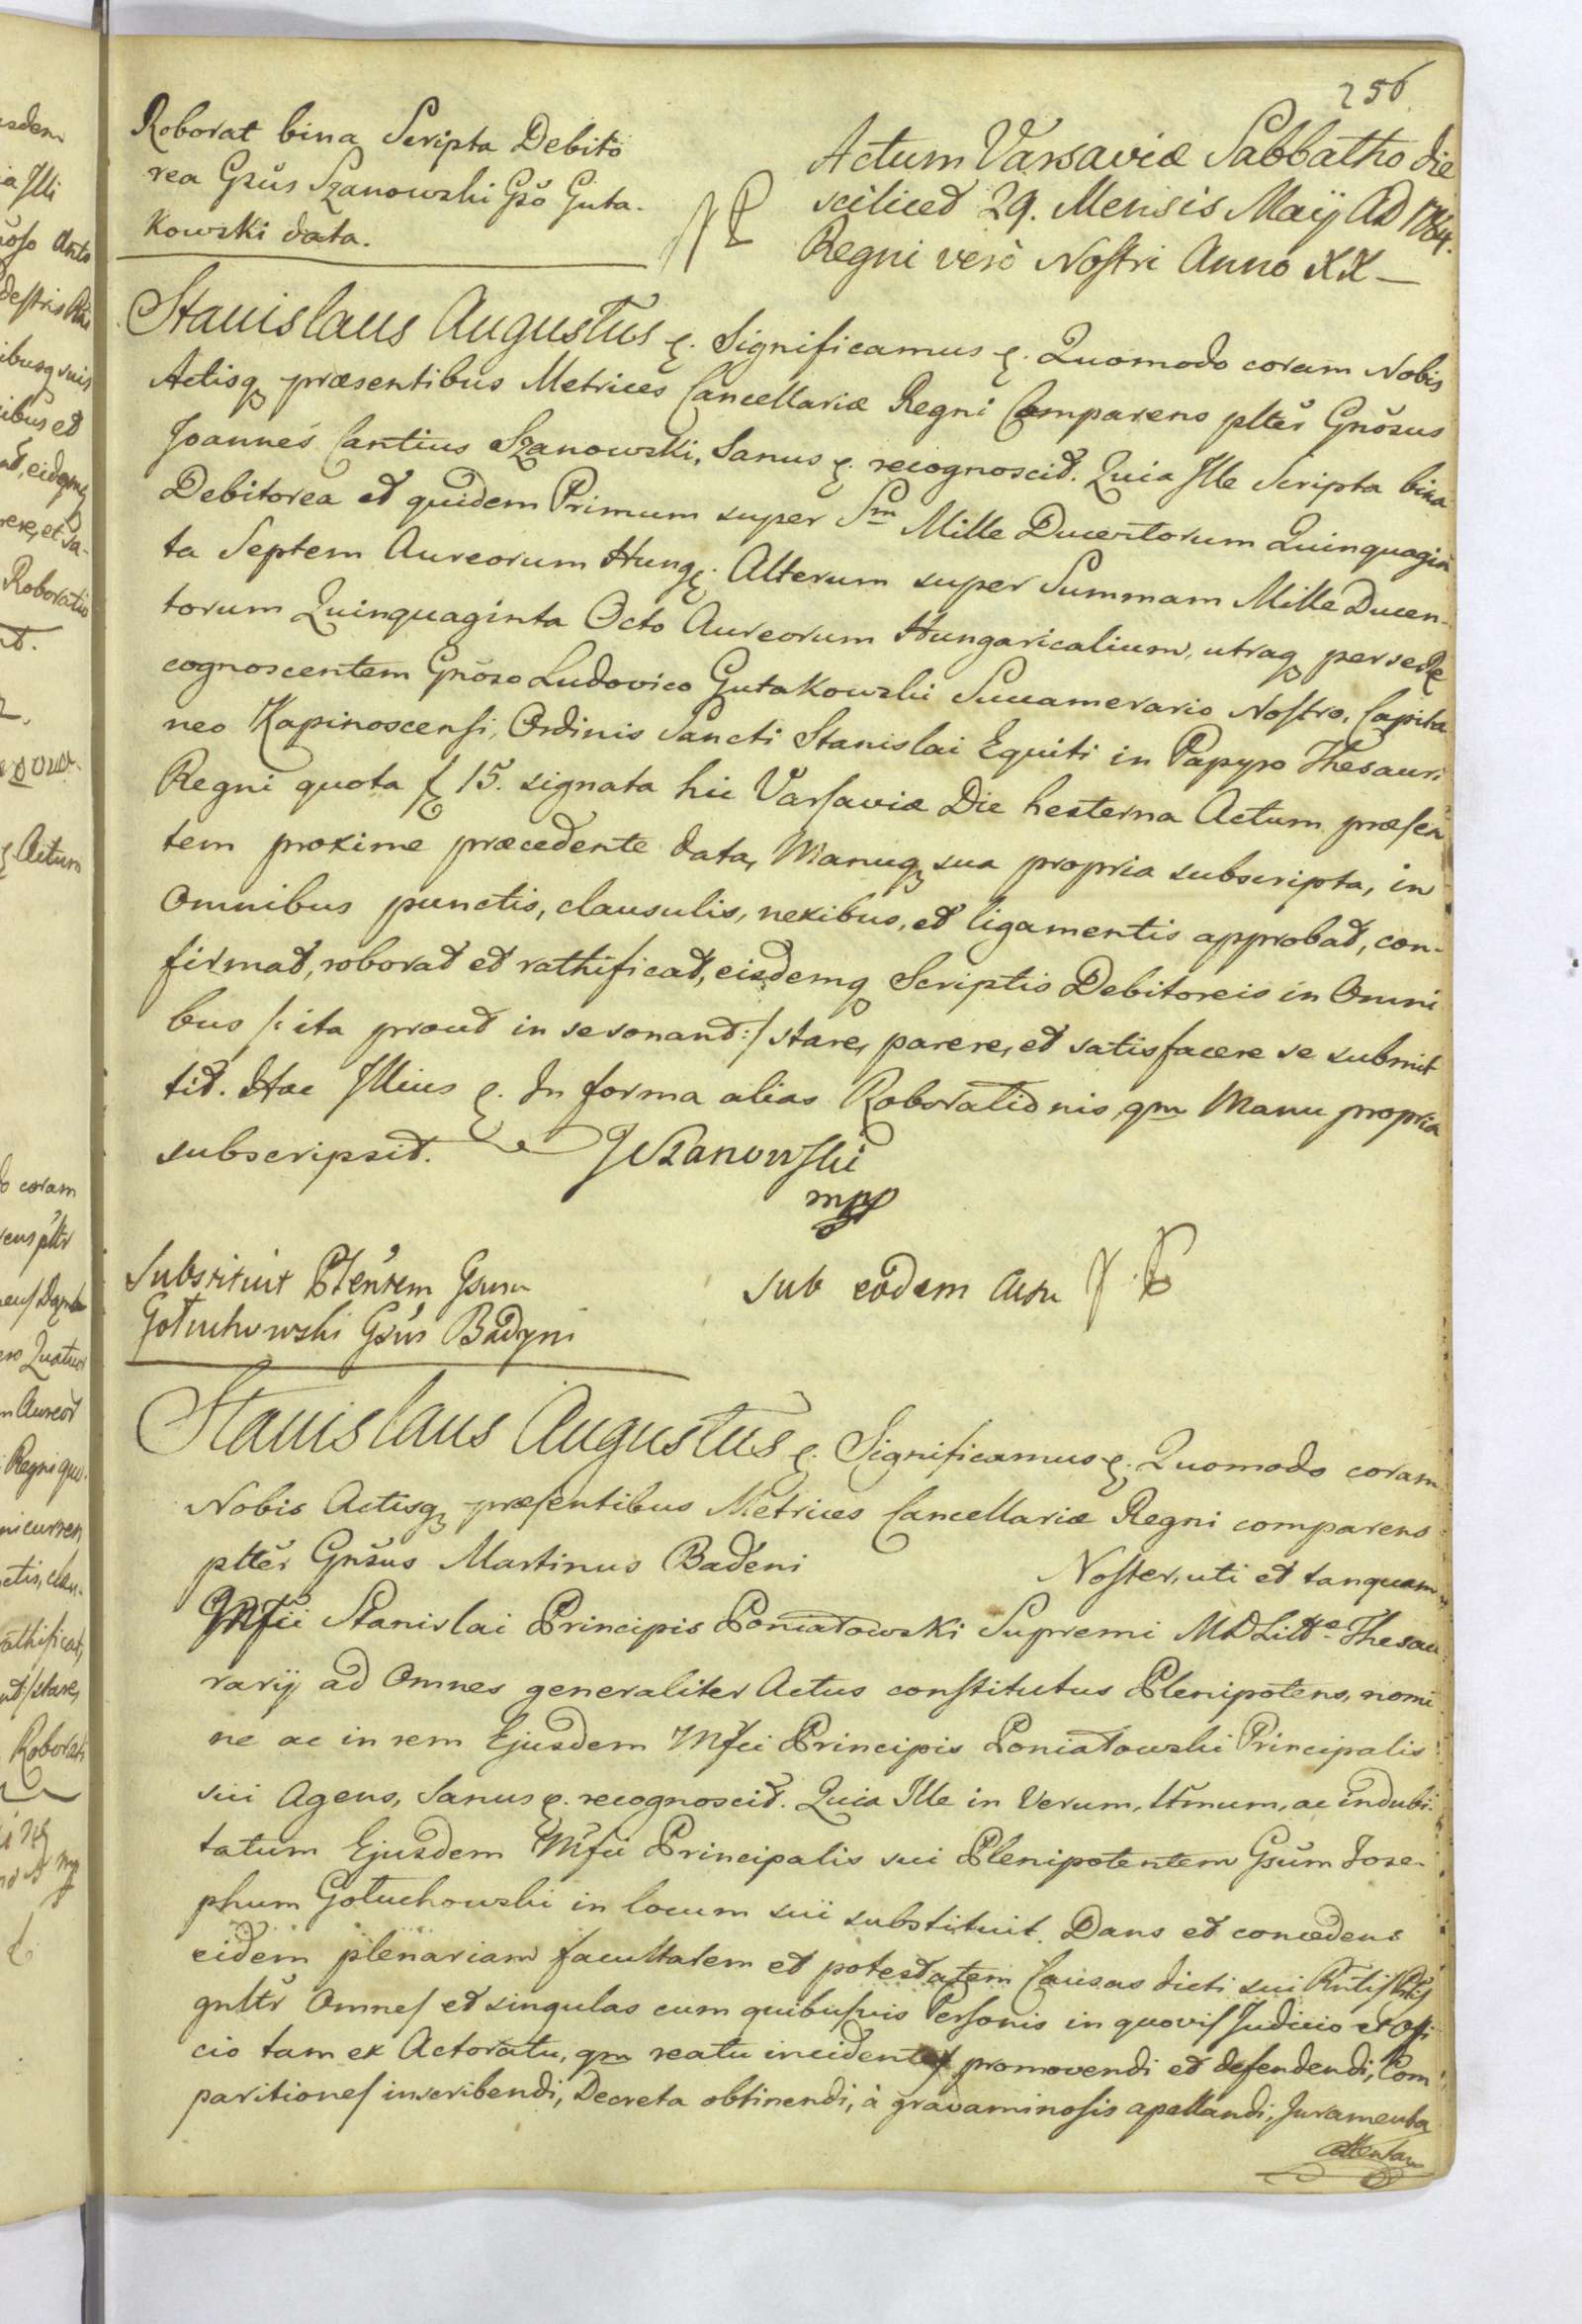 256
Roborat bina Scripta Debito
rea Gsus Szanowski Gso Guta-
kowski data.
Actum Varsaviæ Sabbatho die
scilicet 29. Mensis Maij AD 1784.
Regni verò Nostri Anno XX
Stanislaus Augustus &. Significamus &. Quomodo coram Nobis
Actisq præsentibus Metrices Cancellariæ Regni Comparens pltẽr Gnõsus
Joannes Cantius Szanowski, Sanus &. recognoscit. Quia Ille Scripta bina
Debitorea et quidem Primum super Sm̄ Mille Ducentorum Quinquagin
ta Septem Aureorum Hung&. Alterum super Summam Mille Ducen-
torum Quinquaginta Octo Aureorum Hungaricalium, utraq per se Re
cognoscentem Gnõso Ludovico Gutakowski Succamerario Nostro, Capita
neo Kapinoscensi, Ordinis Sancti Stanislai Equiti in Papyro Thesauri
Regni quota f 15. signata hic Varsaviæ Die hesterna Actum præsen
tem proxime præcedente data, Manuq sua propria subscripta, in
Omnibus punctis, clausulis, nexibus, et ligamentis approbat, con-
firmat, roborat et rathificat, eisdemq Scriptis Debitoreis in Omni
bus /: ita prout in se sonant :/ stare, parere, et satisfacere se submit
tit. Hac Illius &. In forma alias Roborationis qm Manu propria
subscripsit. JSzanowski
mpp
Substituit Pltentem Gsum
Gołuchowski Gsus Badyni
sub eodem Actu
Stanislaus Augustus &. Significamus &. Quomodo coram
Nobis Actisq præsentibus Metrices Cancellariæ Regni comparens
pltẽr Gnsus Martinus Badeni Noster, uti et tanquam
Mfci Stanislai Principis Poniatowski Supremi MDLitt̃æ Thesau
rarij ad Omnes generaliter Actus constitutus Plenipotens, nomi
ne ac in rem Ejusdem Mfci Principis Poniatowski Principalis
sui Agens, Sanus &. recognoscit. Quia Ille in Verum, ltmum, ac indubi-
tatum Ejusdem Mfci Principalis sui Plenipotentem Gsũm Jose-
phum Gołuchowski in locum sui substituit. Dans et concedens
eidem plenariam facultatem et potestatem Causas dicti sui
gnltr Omnes et singulas cum quibusvis Personis in quovis Judicio et Offi
cio tam ex Actoratu, qm reatu incidentes promovendi et defendendi, Com
paritiones inscribendi, Decreta obtinendi, à gravaminosis apellandi, Juramenta